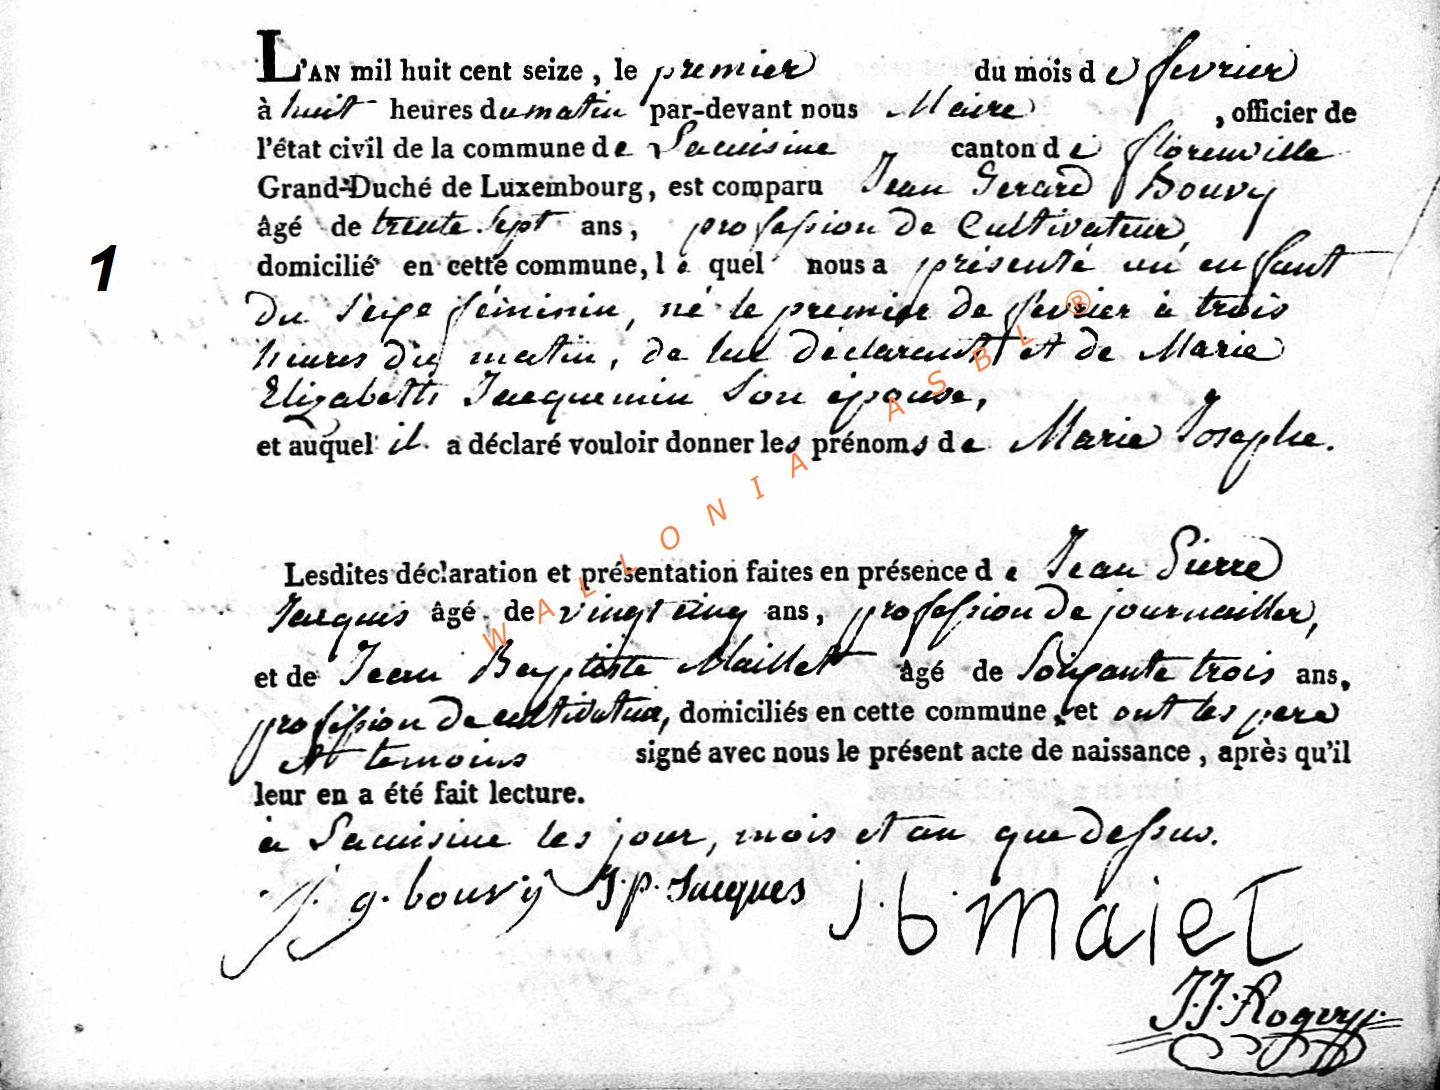 L'AN mil huit cent seize, le premier du mois de fevrier
à huit heures du matin par-devant nous Maire, officier de
l'état civil de la commune de Lacuisine canton de florenville
Grand-Duché de Luxembourg, est comparu Jean Gerard Bouvy
âgé de trente Sept ans, profession de Cultivateur,
1
domicilié en cette commune, lequel nous a présenté un enfant
du Sexe féminin, né le premier de fevrier à trois
heures du matin, de lui déclarant et de Marie
Elizabeth Jacquemin Son épouse,
et auquel il a déclaré vouloir donner les prénoms de Marie Josephe.
Lesdites déclaration et présentation faites en présence de Jean Pierre
Jacques âgé de vingt cinq ans, profession de journailler,
et de Jean Baptiste Maillet âgé de Soixante trois ans,
profession de cultivateur, domiciliés en cette commune, et ont les pere
et temoins signé avec nous le présent acte de naissance, après qu'il
leur en a été fait lecture.
a Lacuisine les jour, mois et an que dessus.
j. g. bouvÿ J. p. Jacques j. b. maiet
J. J. Rogery
WALLONIA ASBL ®